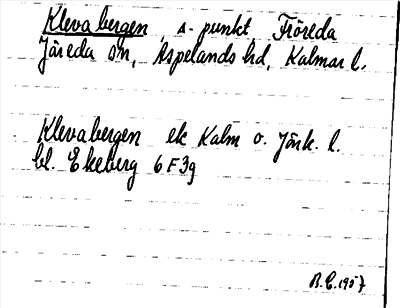 Klevabergen, s-punkt, Fröreda
Järeda sn, Aspelands hd, Kalmar l.
Klevabergen ek Kalm o. Jönk. l.
bl. Ekeberg 6F3g
B.E. 1957